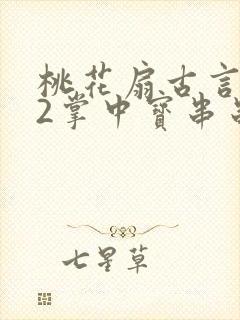 桃花扇古言
2掌中寶串
七星草